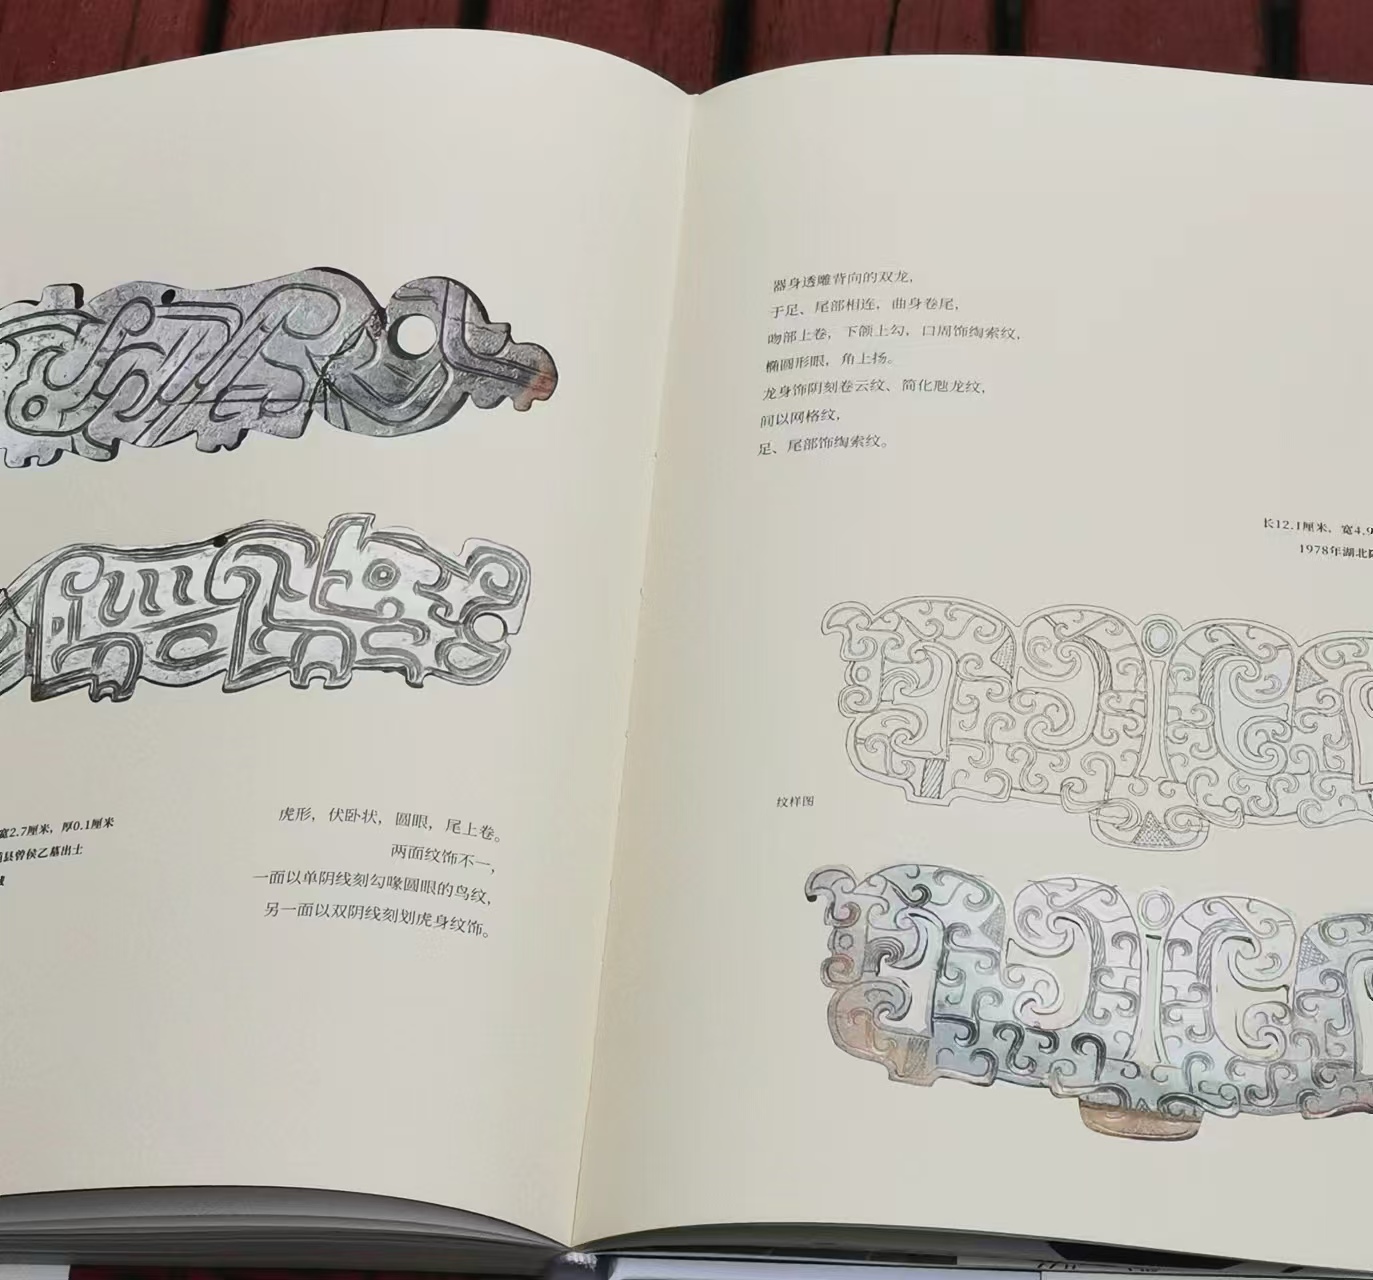 宽2.7厘米，厚0.1厘米
县曾侯乙墓出土
虎形，伏卧状，圆眼，尾上卷。
两面纹饰不一，
一面以单阴线刻勾喙圆眼的鸟纹，
另一面以双阴线刻划虎身纹饰。
器身透雕背向的双龙，
于足、尾部相连，曲身卷尾，
吻部上卷，下颌上勾，口周饰绹索纹，
椭圆形眼，角上扬。
龙身饰阴刻卷云纹、简化虺龙纹，
间以网格纹，
足、尾部饰绹索纹。
长12.1厘米，宽4.9
1978年湖北
纹样图